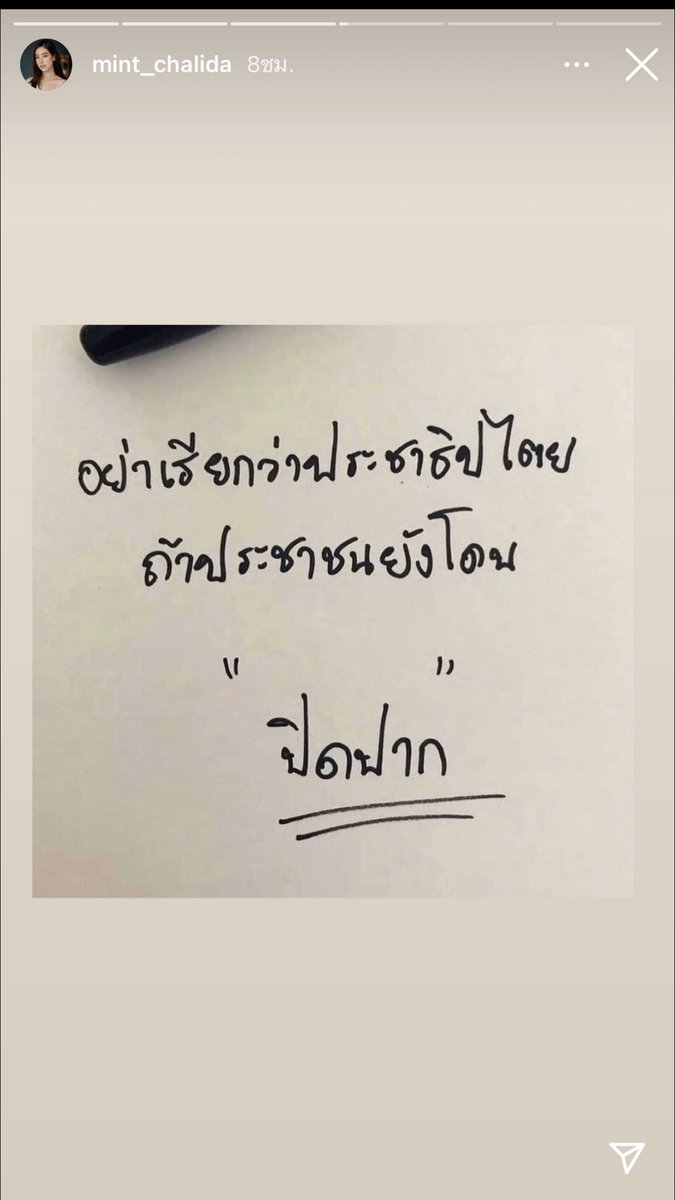 mint_chalida 8ชม.
อย่าเรียกว่าประชาธิปไตย
ถ้าประชาชนยังโดน
"ปิดปาก"